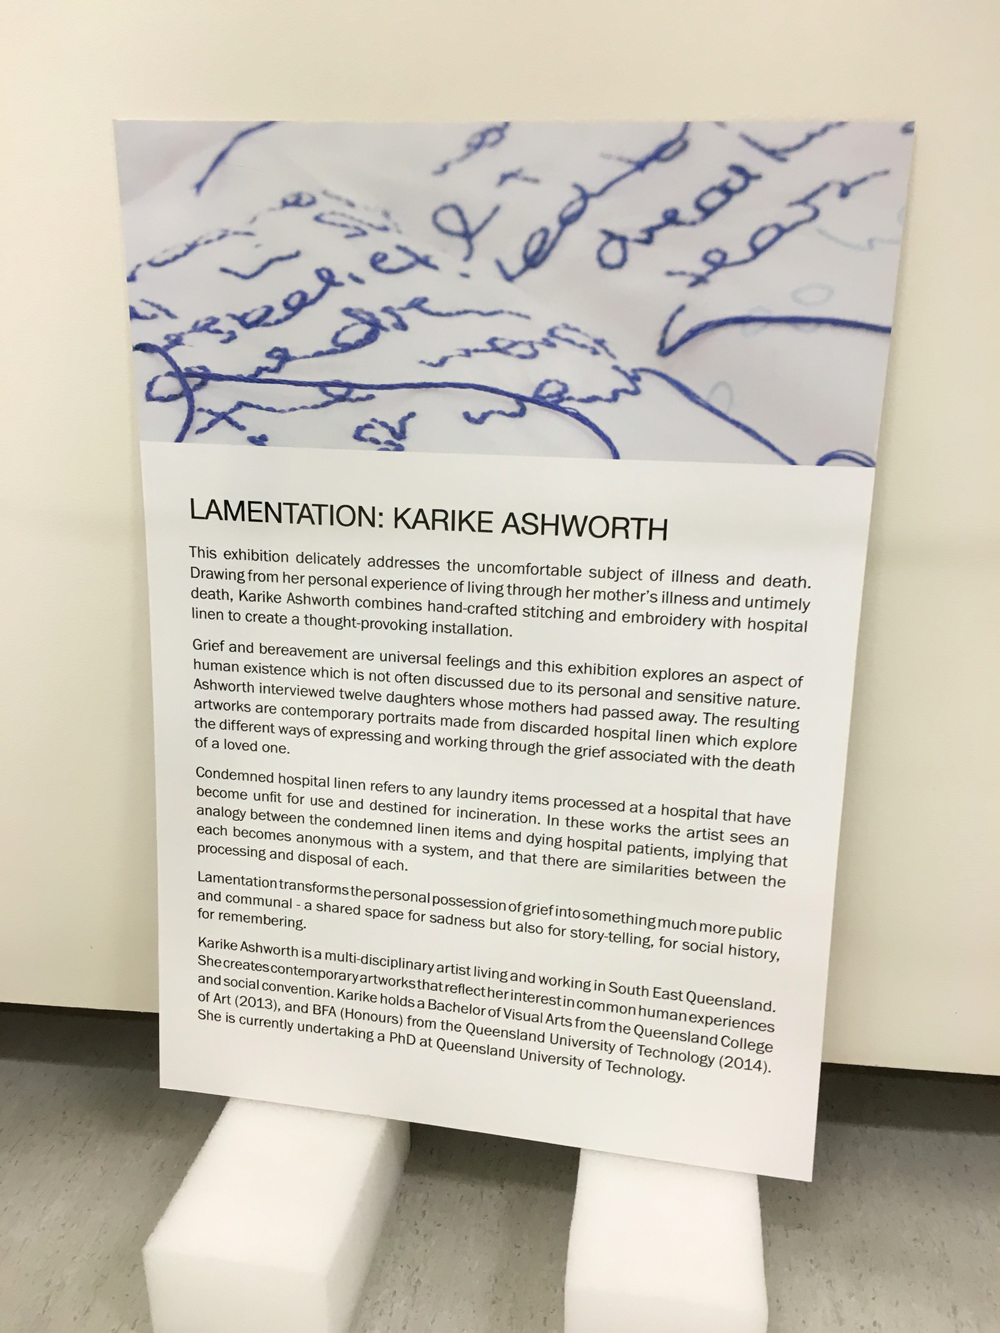 great
years
LAMENTATION: KARIKE ASHWORTH
This exhibition delicately addresses the uncomfortable subject of illness and death.
Drawing from her personal experience of living through her mother's illness and untimely
death, Karike Ashworth combines hand-crafted stitching and embroidery with hospital
linen to create a thought-provoking installation.
Grief and bereavement are universal feelings and this exhibition explores an aspect of
human existence which is not often discussed due to its personal and sensitive nature.
Ashworth interviewed twelve daughters whose mothers had passed away. The resulting
artworks are contemporary portraits made from discarded hospital linen which explore
the different ways of expressing and working through the grief associated with the death
of a loved one.
Condemned hospital linen refers to any laundry items processed at a hospital that have
become unfit for use and destined for incineration. In these works the artist sees an
analogy between the condemned linen items and dying hospital patients, implying that
each becomes anonymous with a system, and that there are similarities between the
processing and disposal of each.
Lamentation transforms the personal possession of grief into something much more public
and communal - a shared space for sadness but also for story-telling, for social history,
for remembering.
Karike Ashworth is a multi-disciplinary artist living and working in South East Queensland.
She creates contemporary artworks that reflect her interest in common human experiences
and social convention. Karike holds a Bachelor of Visual Arts from the Queensland College
of Art (2013), and BFA (Honours) from the Queensland University of Technology (2014).
She is currently undertaking a PhD at Queensland University of Technology.